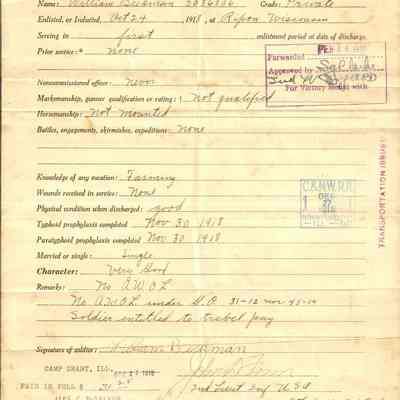 Name: William Beckman Grade: Private
Enlisted, or Inducted, Oct 24, 1918, at Ripon Wisconsin
Serving in first enlistment period at date of discharge.
Prior service:* None
Forwarded
Approved by
For Victory Medal with
Noncommissioned officer: Never
Marksmanship, gunner qualification or rating:† Not qualified
Horsemanship: Not mounted
Battles, engagements, skirmishes, expeditions: None
Knowledge of any vocation: Farming
Wounds received in service: None
C.&N.W.RY.
TRANSPORTATION ISSUED
Physical condition when discharged: good
Typhoid prophylaxis completed Nov 30 1918
Paratyphoid prophylaxis completed Nov 30 1918
Married or single: Single
Character: Very Good
Remarks: No A.W.O.L
No A.W.O.L under G.O. 31-12 nor 45-14
Soldier entitled to travel pay
Signature of soldier: William Beckman
CAMP GRANT, ILL.
PAID IN FULL $
2nd Lieut Inf U S A